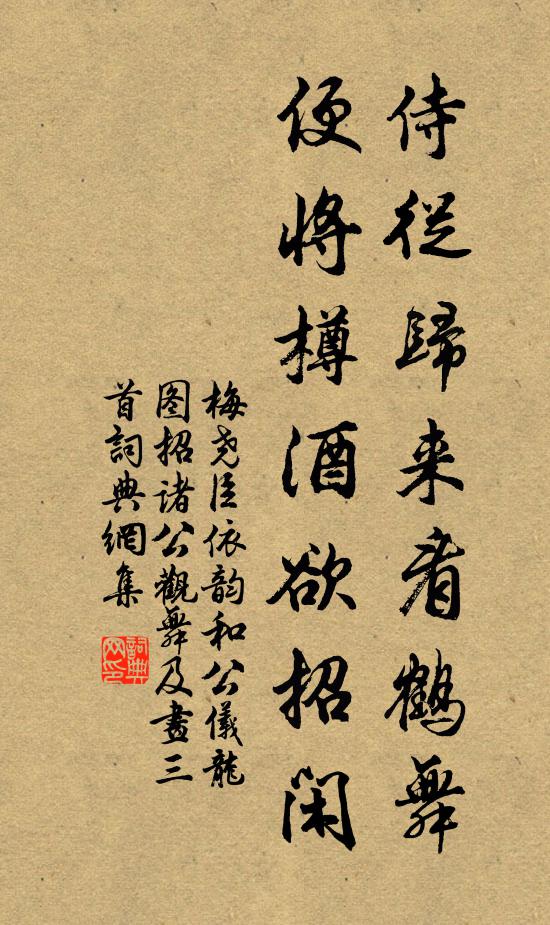 侍從歸来看鶴舞
便將樽酒欲招闲
梅尧臣依韵和公儀龍
图招诸公觀舞及畫三
首詞典網集
詞典网印